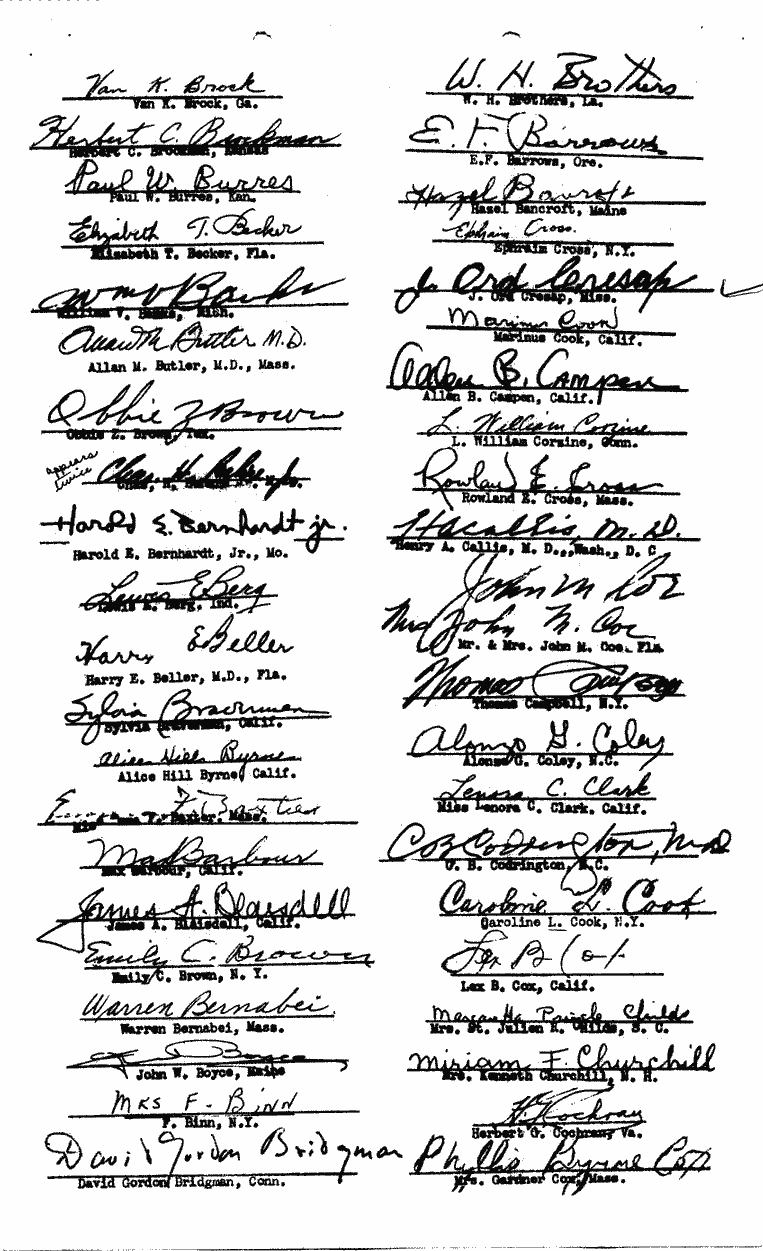 Van K. Brock
Van K. Brock, Ga.
Herbert C. Brockman
Herbert C. Brockman, Kansas
Paul W. Burres
Paul W. Burres, Kan.
Elizabeth T. Becker
Elizabeth T. Becker, Fla.
Wm V Banks
William V. Banks, Mich.
Allan M Butler M.D.
Allan M. Butler, M.D., Mass.
Obbie Z Brown
Obbie Z. Brown, Tex.
appears
twice
Chas. H.
Harold E. Bernhardt jr.
Harold E. Bernhardt, Jr., Mo.
Lewis E Berg
Berg, Ind.
Harry E Beller
Harry E. Beller, M.D., Fla.
Sylvia Braverman
Sylvia Braverman, Calif.
Alice Hill Byrne
Alice Hill Byrne, Calif.
F. Baxter
F. Baxter, Mass.
Max Barbour
Max Barbour, Calif.
James A. Blaisdell
James A. Blaisdell, Calif.
Emily C. Brown
Emily C. Brown, N. Y.
Warren Bernabei
Warren Bernabei, Mass.
Boyce
John W. Boyce, Maine
MRS F. BINN
F. Binn, N.Y.
David Gordon Bridgman
David Gordon Bridgman, Conn.
W. H. Brothers
W. H. Brothers, La.
E. F. Barrows
E.F. Barrows, Ore.
Hazel Bancroft
Hazel Bancroft, Maine
Ephraim Cross.
Ephraim Cross, N.Y.
J. Ord Cresap
J. Ord Cresap, Miss.
Marinus Cook
Marinus Cook, Calif.
Allen B. Campen
Allen B. Campen, Calif.
L. William Corzine
L. William Corzine, Conn.
Rowland E. Cross
Rowland E. Cross, Mass.
H A Callis, M.D.
Henry A. Callis, M. D., Wash., D. C
John M Coe
Mrs John M. Coe
Mr. & Mrs. John M. Coe. Fla
Thomas Campbell
Thomas Campbell, N.Y.
Alonzo G. Coley
Alonzo G. Coley, N.C.
Lenora C. Clark
Miss Lenora C. Clark, Calif.
C B Codrington, M.D.
C. B. Codrington, N.C.
Caroline L. Cook
Caroline L. Cook, N.Y.
Lex B Cox
Lex B. Cox, Calif.
Martha Pringle Childs
Mrs. St. Julien R. Childs, S. C.
Miriam F. Churchill
Mrs. Kenneth Churchill, N. H.
H. Cochran
Herbert G. Cochran, Va.
Phyllis Byrne Cox
Mrs. Gardner Cox, Mass.